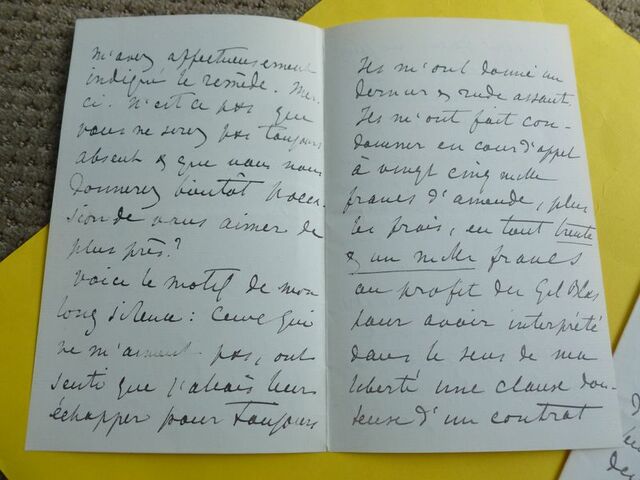 m'avez affectueusement
indiqué le remède. Mer-
ci. N'est ce pas que
vous ne serez pas toujours
absent & que vous nous
donnerez bientôt l'occa-
sion de vous aimer de
plus près?
Voici le motif de mon
long silence: Ceux qui
ne m'aiment pas, ont
senti que j'allais leur
échapper pour toujours
Ils m'ont donné un
dernier & rude assaut.
Ils m'ont fait con-
damner en cour d'appel
à vingt cinq mille
francs d'amende, plus
les frais, en tout trente
& un mille francs
au profit du Gil Blas
pour avoir interprété
dans le sens de ma
liberté une clause dou-
teuse d'un contrat